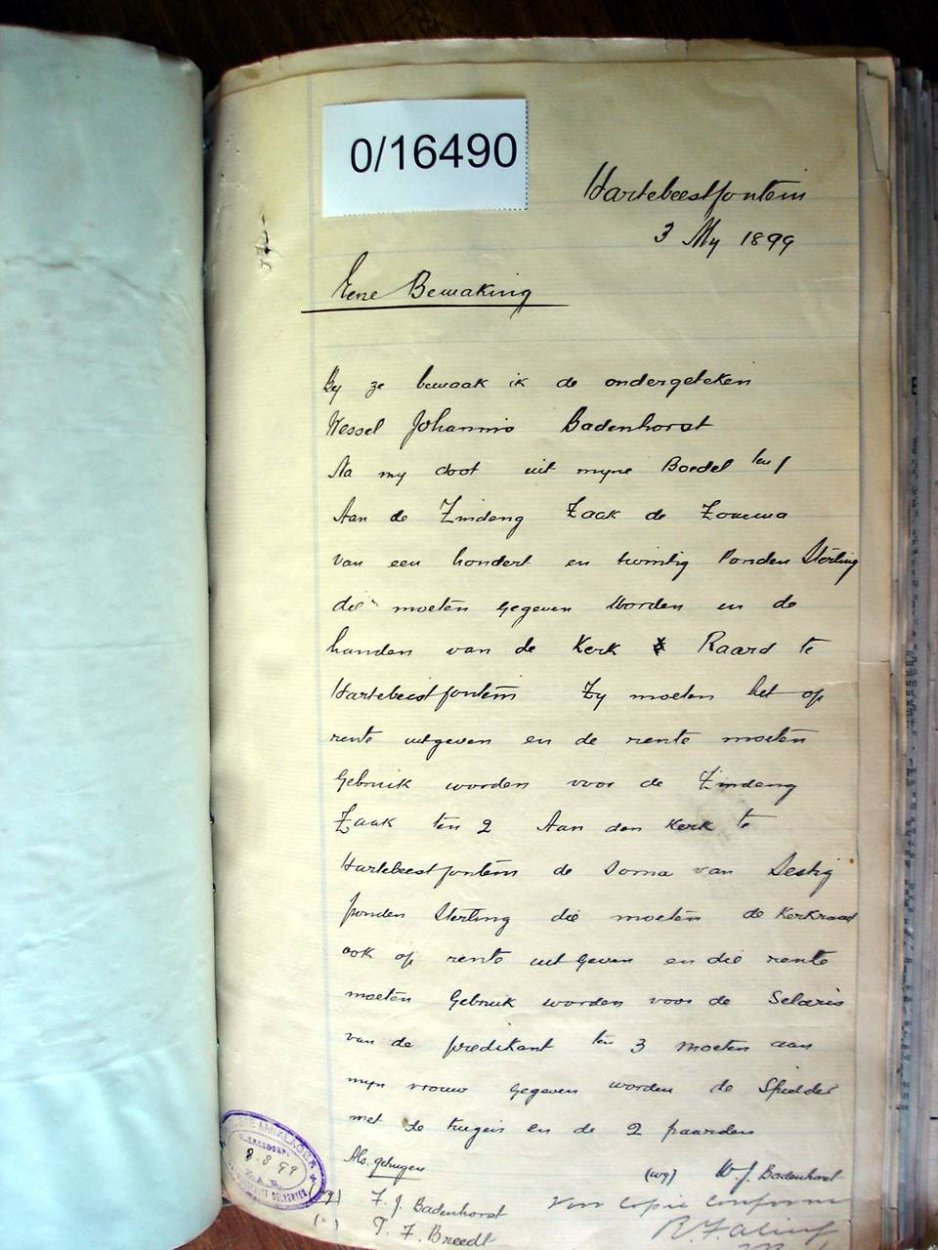 0/16490
Hartebeestfontein
3 My 1899
Eene Bewaking
By ze bewaak ik de ondergeteken
Wessel Johannis Badenhorst
Na my doot uit myne Boedel ten 1
Aan de Zindeng Zaak de Zomma
van een hondert en twintig Ponden Sterling
die moeten gegeven Worden in de
handen van de Kerk Raard te
Hartebeestfontein Zy moeten het op
rente uitgeven en de rente moeten
Gebruik worden voor de Zindeng
Zaak ten 2 Aan den Kerk te
Hartebeestfontein de Soma van Sestig
ponden Sterling die moeten de Kerkraad
ook op rente uit Geven en die rente
moeten Gebruik worden voor de Selaris
van de predikant ten 3 moeten aan
myn vrouw gegeven worden de Spidder
met ze tuigen en de 2 paarden
Als getuigen (wg) W. J. Badenhorst
F. J. Badenhorst Voor Copie Conform
T. F. Breedt
8.8 99